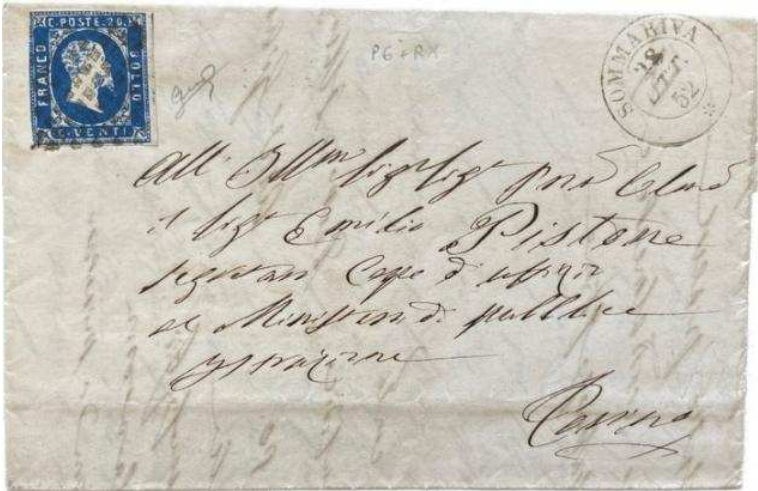 C. POSTE. 20
FRANCO
BOLLO
C. VENTI
P6+RX
SOMMARIVA
28
OTT.
52
All' Ill.mo Sig. Sig.
il Sig.r Emilio Pistone
Segretaro Capo d'uffizio
al Ministero di pubblica
istruzione
Torino